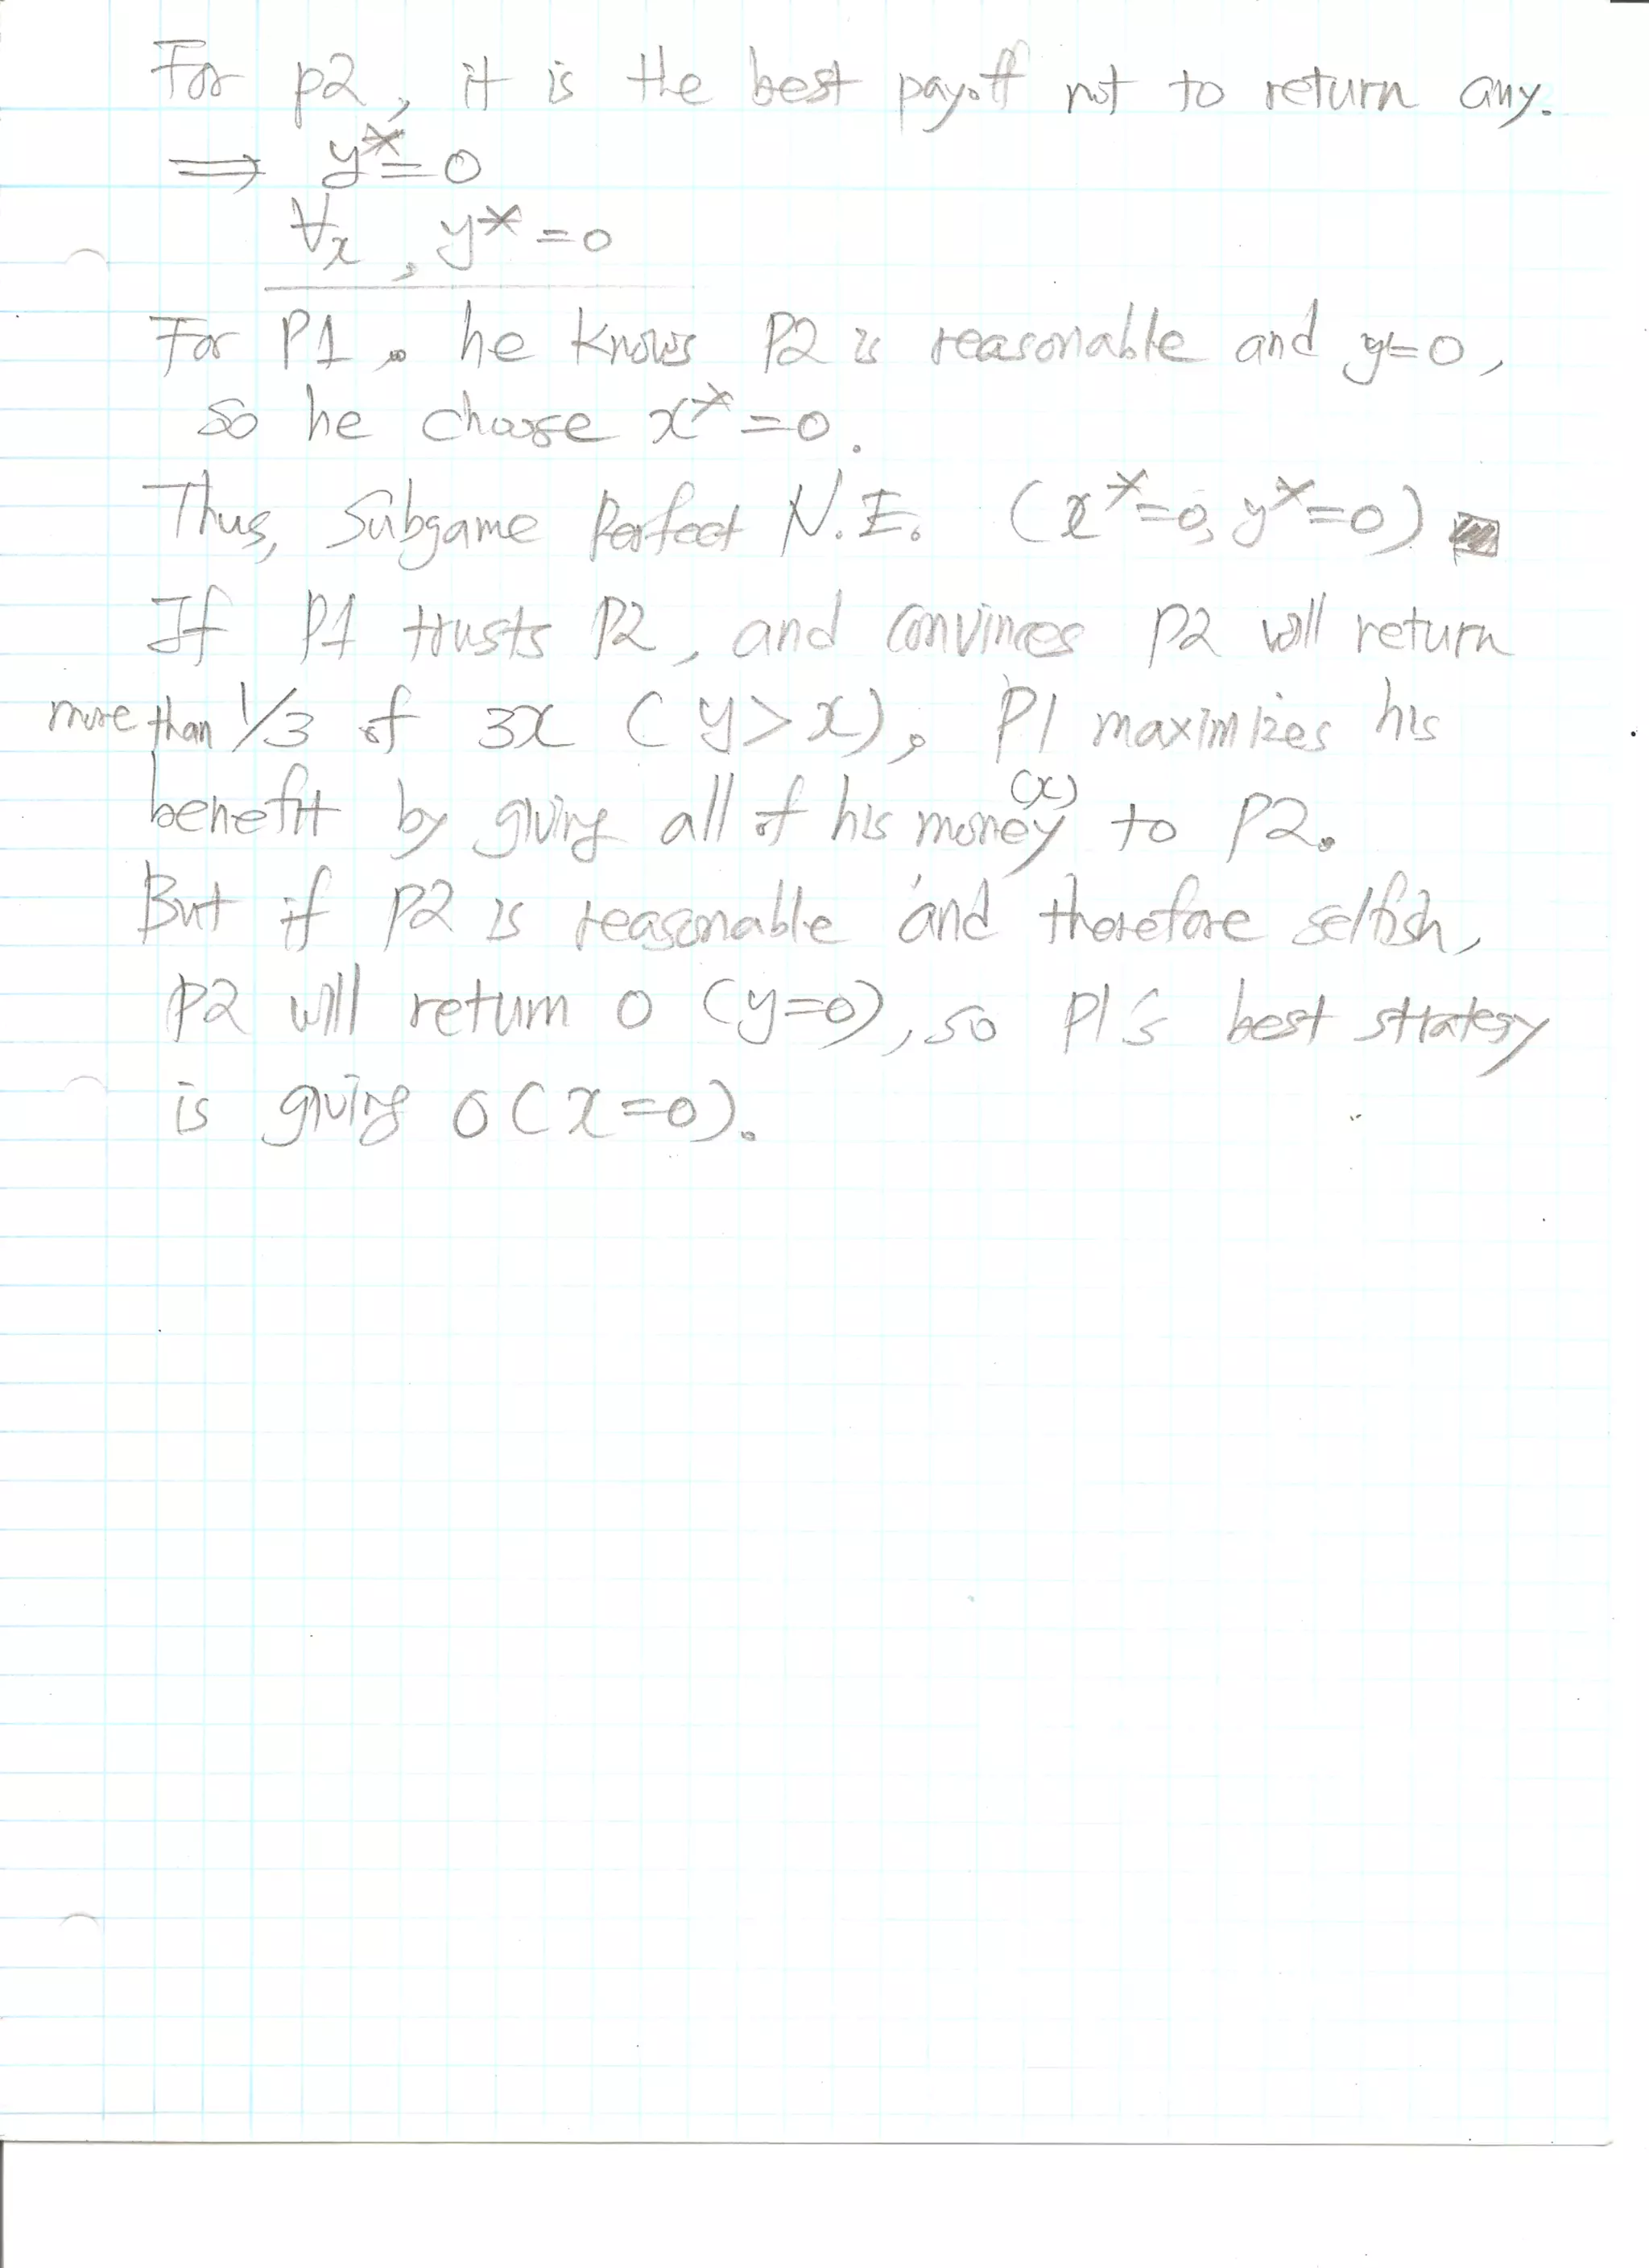 For p2, it is the best payoff not to return any.
⟹ y*=0
∀x, y*=0
For P1, he knows P2 is reasonable and y=0,
so he choose x*=0.
Thus, Subgame Perfect N.E. (x*=0, y*=0)
If P1 trusts P2, and convinces P2 will return
more than 1/3 of 3x (y>x), P1 maximizes his
benefit by giving all of his money (x) to P2.
But if P2 is reasonable and therefore selfish,
P2 will return 0 (y=0), so P1's best strategy
is giving 0 (x=0).